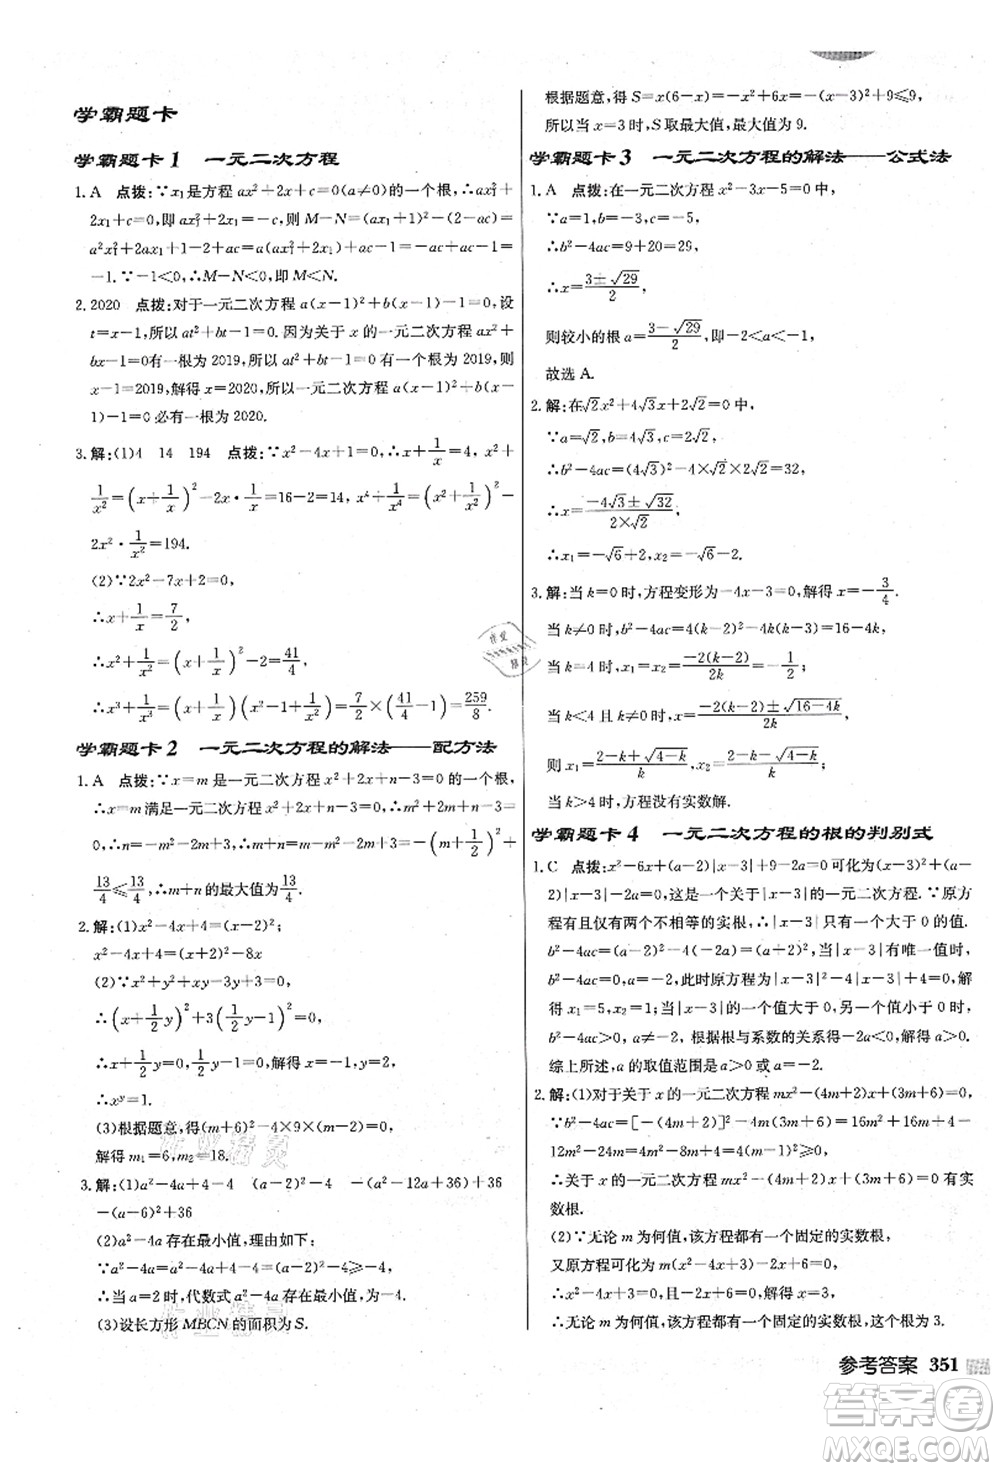 学霸题卡
学霸题卡 1 一元二次方程
1. A 点拨:∵x₁是方程 ax²+2x+c=0(a≠0)的一个根,∴ax₁²+
2x₁+c=0,即 ax₁²+2x₁=-c,则 M-N=(ax₁+1)²-(2-ac)=
a²x₁²+2ax₁+1-2+ac=a(ax₁²+2x₁)+ac-1=-ac+ac-1=
-1.∵-1<0,∴M-N<0,即 M<N.
2. 2020 点拨:对于一元二次方程 a(x-1)²+b(x-1)-1=0,设
t=x-1,所以 at²+bt-1=0.因为关于 x 的一元二次方程 ax²+
bx-1=0有一个根为2019,所以 at²+bt-1=0有一个根为2019,则
x-1=2019,解得 x=2020,所以一元二次方程 a(x-1)²+b(x-
1)-1=0必有一根为2020.
3. 解:(1)4 14 194 点拨:∵x²-4x+1=0,∴x+1/x=4,x²+
1/x²=(x+1/x)²-2x·1/x=16-2=14,x⁴+1/x⁴=(x²+1/x²)²-
2x²·1/x²=194.
(2)∵2x²-7x+2=0,
∴x+1/x=7/2,
∴x²+1/x²=(x+1/x)²-2=41/4,
∴x³+1/x³=(x+1/x)(x²-1+1/x²)=7/2×(41/4-1)=259/8.
学霸题卡 2 一元二次方程的解法——配方法
1. A 点拨:∵x=m是一元二次方程 x²+x+n-3=0的一个根,
∴x=m满足一元二次方程 x²+x+n-3=0,∴m²+m+n-3=
0,∴n=-m²-m+3,∴m+n=-m²+3=-(m+1/2)²+
13/4≤13/4,∴m+n的最大值为13/4.
2. 解:(1)x²-4x+4=(x-2)²
x²-4x+4=(x+2)²-8x
(2)∵x²+y²+xy-3y+3=0,
∴(x+1/2y)²+3(1/2y-1)²=0,
∴x+1/2y=0,1/2y-1=0,解得 x=-1,y=2,
∴xʸ=1.
(3)根据题意,得(m+6)²-4×9×(m-2)=0,
解得 m₁=6,m₂=18.
3. 解:(1)a²-4a+4-4 (a-2)²-4 -(a²-12a+36)+36
-(a-6)²+36
(2)a²-4a存在最小值,理由如下:
∵a²-4a=a²-4a+4-4=(a-2)²-4≥-4,
∴当 a=2时,代数式 a²-4a存在最小值,最小值为-4.
(3)设长方形 MBCN的面积为 S.
根据题意,得 S=x(6-x)=-x²+6x=-(x-3)²+9≤9,
所以当 x=3时,S取最大值,最大值为 9.
学霸题卡 3 一元二次方程的解法——公式法
1. A 点拨:在一元二次方程 x²-3x-5=0中,
∵a=1,b=-3,c=-5,
∴b²-4ac=9+20=29,
∴x=(3±√29)/2,
则较小的根 a=(3-√29)/2,即-2<a<-1.
故选 A.
2. 解:在√2x²+4√3x+2√2=0中,
∵a=√2,b=4√3,c=2√2,
∴b²-4ac=(4√3)²-4×√2×2√2=32,
∴x=(-4√3±√32)/(2×√2),
∴x₁=-√6+2,x₂=-√6-2.
3. 解:当 k=0时,方程变形为-4x-3=0,解得 x=-3/4.
当 k≠0时,b²-4ac=4(k-2)²-4k(k-3)=16-4k,
当 k=4时,x₁=x₂=-2(k-2)/2k=-1/2;
当 k<4且 k≠0时,x=(-2(k-2)±√(16-4k))/2k,
则 x₁=(-k+2+√(4-k))/k,x₂=(-k+2-√(4-k))/k;
当 k>4时,方程没有实数解.
学霸题卡 4 一元二次方程的根的判别式
1. C 点拨:x²-6x+(a-2)|x-3|+9-2a=0可化为(a-
2)|x-3|-2a=0,这是一个关于|x-3|的一元二次方程.∵原方
程有且仅有两个不相等的实根,∴|x-3|只有一个大于 0的值.
b²-4ac=(a-2)²-4(-2a)=(a+2)²,当|x-3|有唯一值时,
b²-4ac=0,a=-2,此时原方程为|x-3|²-4|x-3|+4=0,解
得 x₁=5,x₂=1;当|x-3|的一个值大于 0,另一个值小于 0时,
b²-4ac>0,a≠-2,根据根与系数的关系得-2a<0,解得 a>0.
综上所述,a的取值范围是 a>0或 a=-2.
2. 解:(1)对于关于 x的一元二次方程 mx²-(4m+2)x+(3m+6)=0,
b²-4ac=[-(4m+2)]²-4m(3m+6)=16m²+16m+4-
12m²-24m=4m²-8m+4=4(m-1)²≥0,
∴关于 x的一元二次方程 mx²-(4m+2)x+(3m+6)=0有实
数根.
(2)∵无论 m为何值,该方程都有一个固定的实数根,
又原方程可变形为 m(x²-4x+3)-2x+6=0,
∴x²-4x+3=0且-2x+6=0,解得 x=3,
∴无论 m为何值,该方程都有一个固定的实数根,这个根为 3.
参考答案 351
答案卷
MXQE.COM